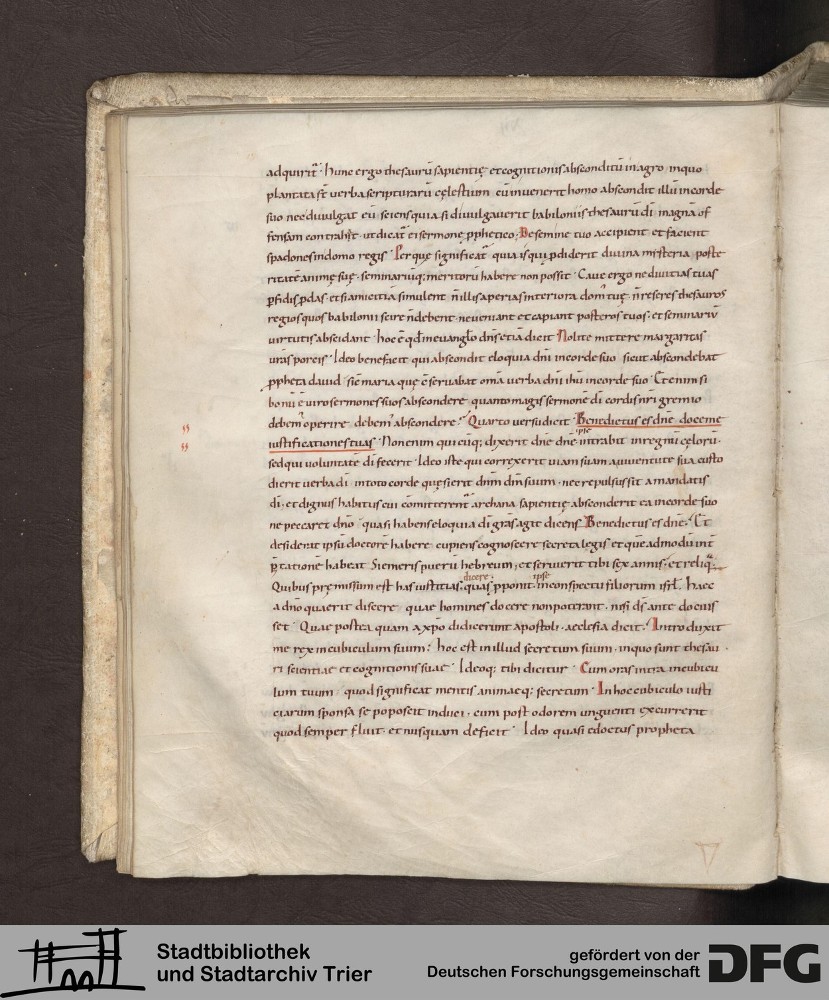 adquirit̄ · hunc ergo thesaurū sapientię et cognitionis absconditū in agro inquo
plantata sт̄ verba scripturarū cęlestium cū invenerit homo abscondit illū in corde
suo nec divulgat eū sciens quia si divulgaverit babiloniis thesaurū dı̄ magnā of
fensam contrahit · ut dicat̄ ei sermone ꝓphetico · De semine tuo accipient et facient
spadones in domo regis · Per quę significat̄ quia is qui ꝑdiderit divina misteria poste
ritatē animę suę · seminariūq; meritorū habere non possit · Cave ergo ne divitias tuas
ꝑfidis ꝓdas · et si amicitiā simulent n̄ illis aperias interiora domꝰ tuę n̄ reseres thesauros
regios quos babilonii scire n̄ debent · ne veniant et capiant posteros tuos · et seminariū
virtutis abscidant · hoc ē qđ in euanglo dn̄s etiā dicit Nolite mittere margaritas
vr̄as porcis · Ideo benefacit qui abscondit eloquia dn̄i in corde suo sicut abscondebat
ꝓpheta david · sic maria quę c̄servabat om̄a verba dn̄i ihū in corde suo · Etenim si
bonū ē viro sermones suos abscondere · quantomagis sermonē dı̄ cordis nr̄i gremio
debemꝰ operire · debemꝰ abscondere · Quarto versu dicit · Benedictus es dn̄e doce me
iustificationes tuas · Non enim quicūq; dixerit dn̄e dn̄e · ipse intrabit in regnū cęlorū ·
sed qui voluntatē dı̄ fecerit · Ideo iste qui correxerit viam suam a iuventute sua custo
dierit verba dı̄ · in toto corde quęsierit dn̄m dn̄m suum · nec repulsus sit a mandatis
dı̄ · et dignus habitus cui cōmitterent̄ archana sapientię absconderit ea in corde suo
ne peccaret dn̄o · quasi habens eloquia dı̄ gr̄as agit dicens Benedictus es dn̄e · Et
desiderat ipsū doctorē habere · cupiens cognoscere secreta legis et quēadmodū int̄
p̄tationē habeat Si emeris puerū hebreum · et servierit tibi sex annis · et reliq̄ ·
Quibus pręmissum est has iustitias · quas dicere · ꝓponit · ipse in conspectu filiorum isrł · haec
a dn̄o quaerit discere · quae homines docere non poterant · nisi dš ante docuis
set · Quae postea quam a xp̄o didicerunt apostoli · aecclesia dicit · Introduxit
me rex in cubiculum suum · hoc est in illud secretum suum · in quo sunt thesau
ri scientiae et cognitionis suae · Ideoq; tibi dicitur · Cum oras intra in cubicu
lum tuum · quod significat mentis animaeq; secretum · In hoc cubiculo iusti
ciarum sponsa se poposcit induci · cum post odorem unguenti excurrerit
quod semper fluit · et nusquam deficit · Ideo quasi edoctus propheta
Stadtbibliothek
und Stadtarchiv Trier
gefördert von der
Deutschen Forschungsgemeinschaft
DFG